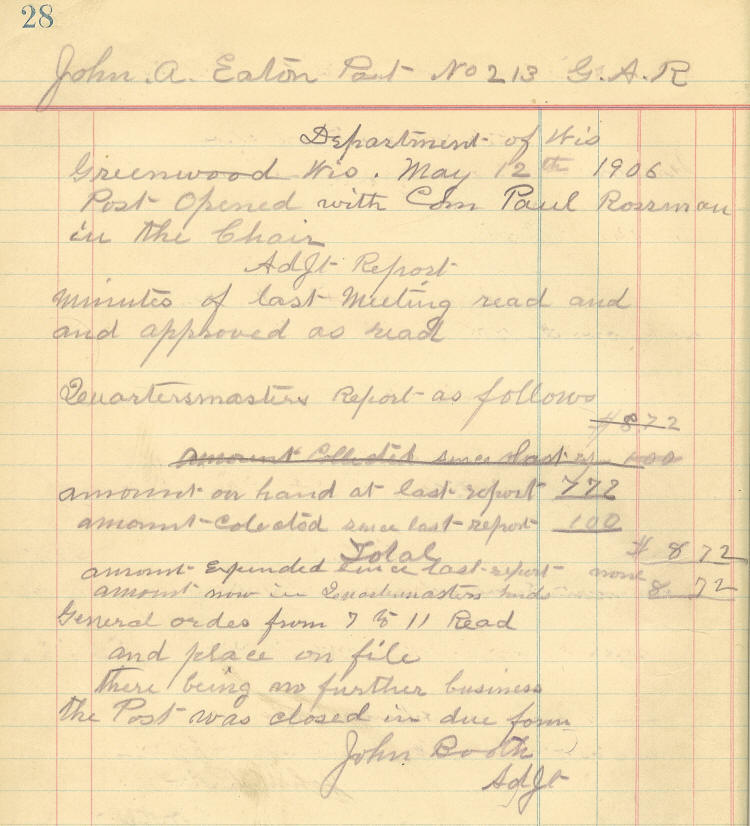 28
John. A. Eaton Post No 213 G. A. R
Department of Wis
Greenwood Wis. May 12th 1906
Post Opened with Com Paul Rossman
in the Chair
AdJt Report
Minutes of last Meeting read and
and approved as read
Quartersmasters Report as follows
$ 8 72
amount Collected since last rep 1 00
amount on hand at last report 7 72
amount Colected since last report 1 00
Total $ 8 72
amount Expended since last report none
amount now in Quartermasters hands 8 72
General ordes from 7 to 11 Read
and place on file
there being no further business
the Post was closed in due form
John Booth
AdJt